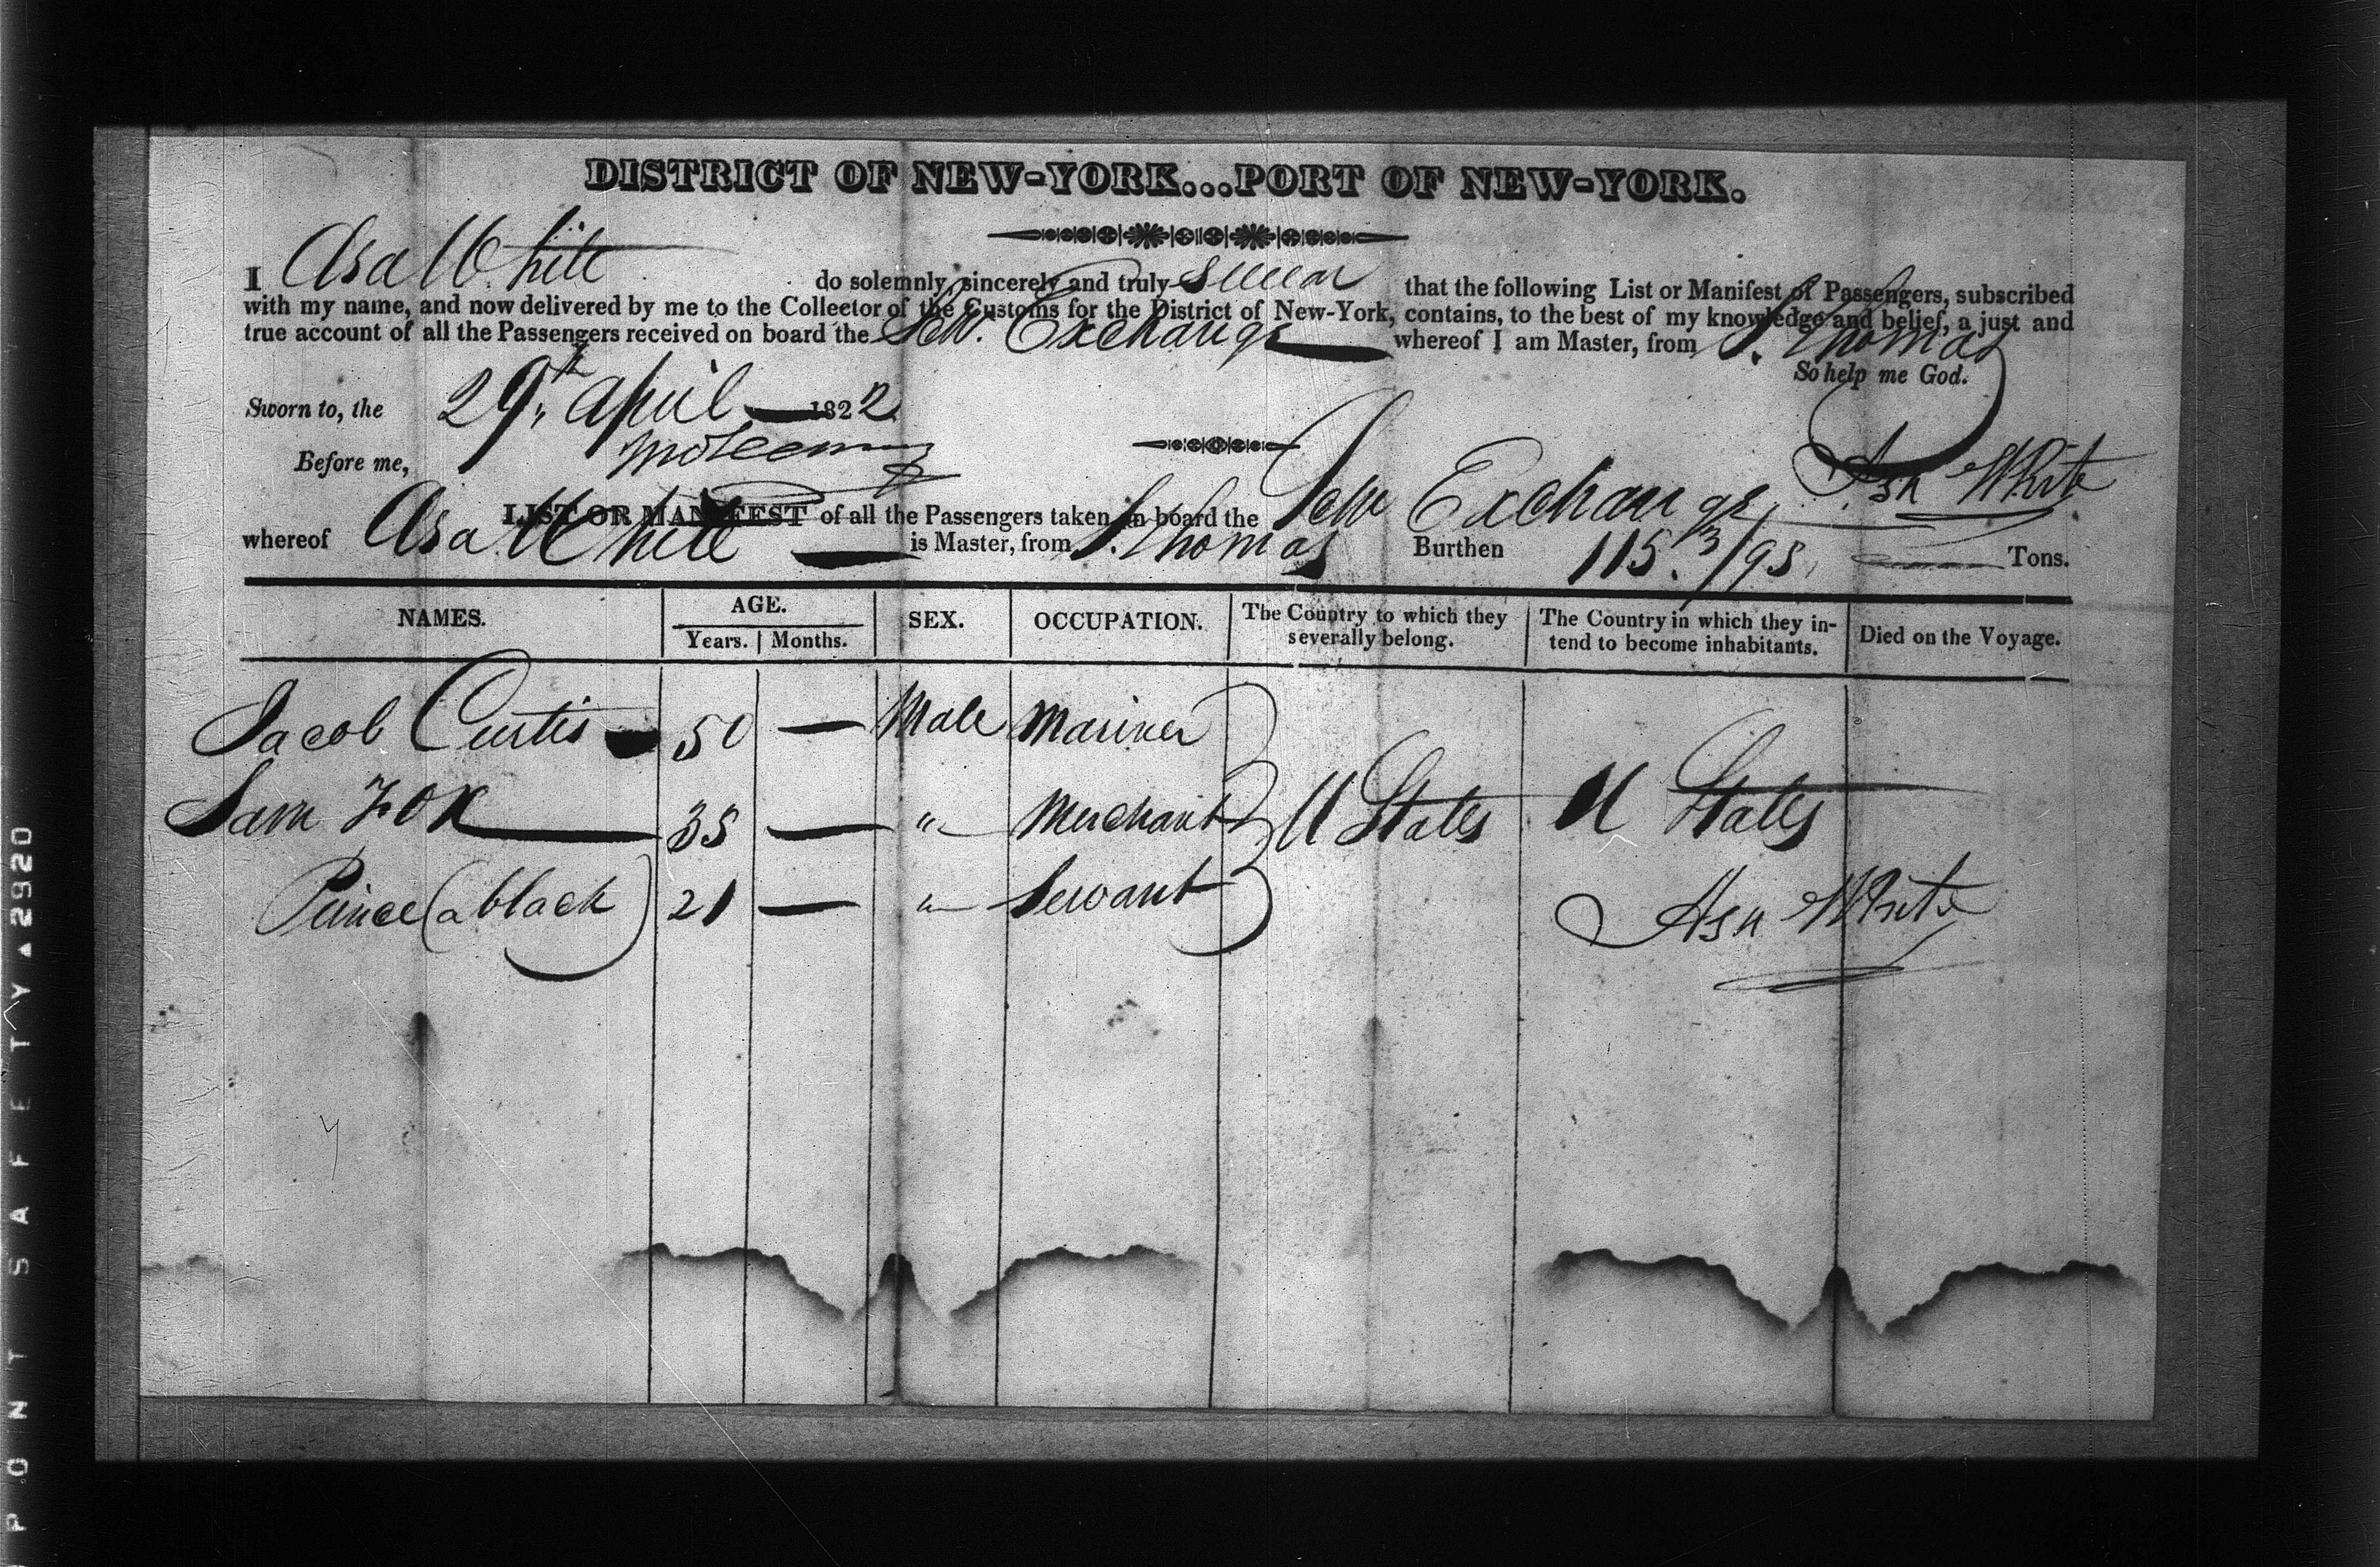 DISTRICT OF NEW-YORK...PORT OF NEW-YORK.
I Asa White do solemnly, sincerely and truly swear that the following List or Manifest of Passengers, subscribed
with my name, and now delivered by me to the Collector of the Customs for the District of New-York, contains, to the best of my knowledge and belief, a just and
true account of all the Passengers received on board the Schr. Exchange whereof I am Master, from St. Thomas
So help me God.
Sworn to, the 29th, April 1822
Before me,
Asa White
LIST OR MANIFEST of all the Passengers taken on board the Schr Exchange
whereof Asa White is Master, from St. Thomas Burthen 115. 3/95 Tons.
NAMES. AGE. SEX. OCCUPATION. The Country to which they severally belong. The Country in which they intend to become inhabitants. Died on the Voyage.
Years. Months.
Jacob Curtis 50 — Male Mariner
Sam Fox 35 — " Merchant U States U States
Prince (a black) 21 — " Servant
Asa White
PONT SAFETY ▲ 2920